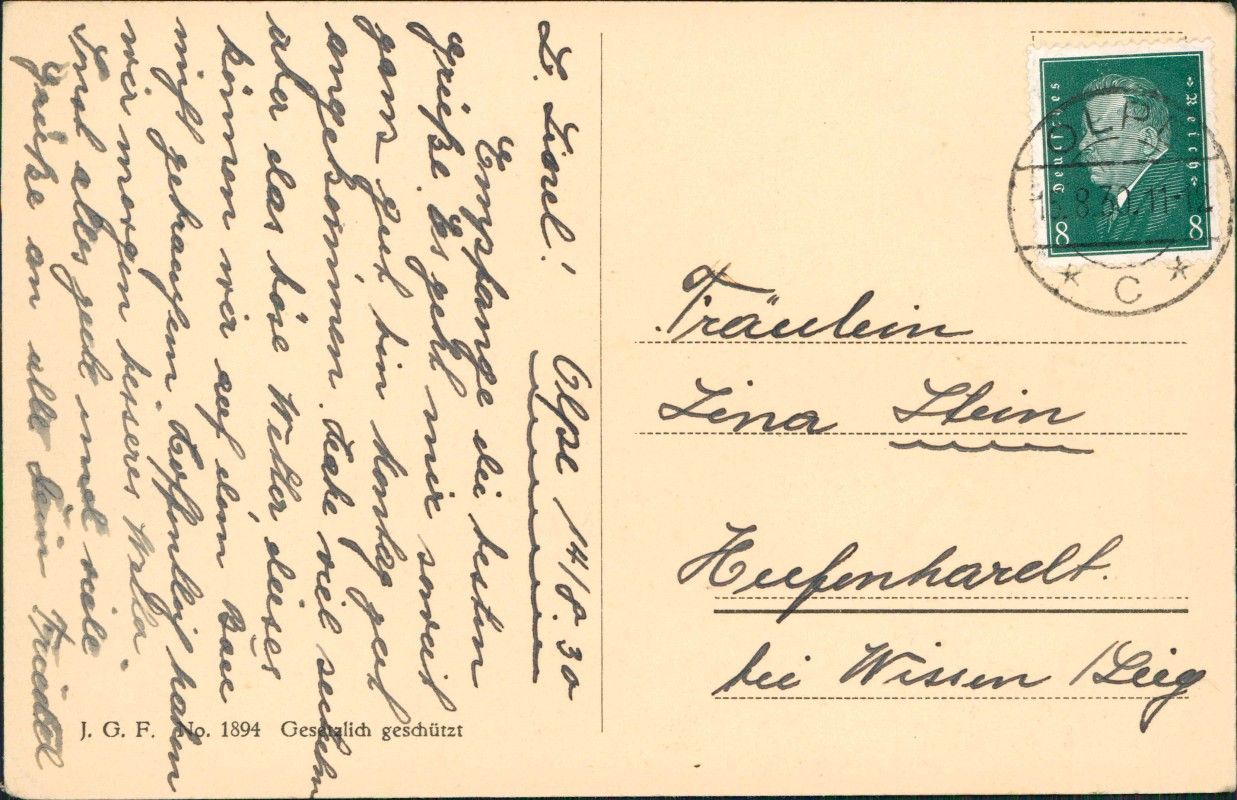 L. Liesel!
Olpe 14/8.30
Empfange die besten
Grüße. Es geht mir soweit
ganz gut bin Montag gut
angekommen. viel
aber das böse Wetter, dieses
können wir auf dem Bau
nicht gebrauchen. Hoffentlich haben
wir morgen besseres
Sonst alles gute und viele
Grüße an alle Dein Friedel
J. G. F. No. 1894 Gesetzlich geschützt
Deutsches Reich
8 8
OLPE
.8.30.11-12
* C *
Fräulein
Lina Stein
bei Wissen /Sieg